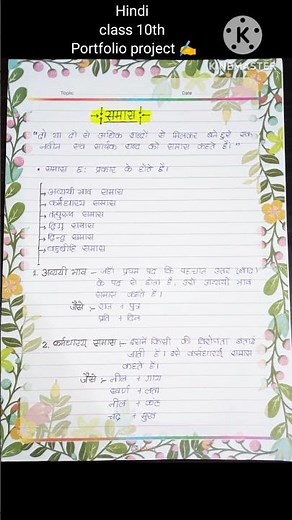 Hindi
class 10th
Portfolio project ✍
KINEMASTER
Topic
Date
समास
"दो या दो से अधिक शब्दों से मिलकर बने हुए एक
नवीन एवं सार्थक शब्द को समास कहते हैं।"
• समास 6: प्रकार के होते हैं।
अव्ययी भाव समास
कर्मधारय समास
तत्पुरुष समास
द्विगु समास
द्विन्द्व समास
बहुब्रीहि समास
1. अव्ययी भाव - जहाँ प्रथम पद कि पहचान उत्तर (बाद)
के पद से होता है, उसे अव्ययी भाव
समास कहते है।
जैसे :- रात + पुत्र
प्रति + दिन
2. कर्मधारय समास :- इसमें किसी की विशेषता बताई
जाती है। उसे कर्मधारय समास
कहते है।
जैसे :- नील + गाय
स्वर्ण + लता
नील + कंठ
चंद्र + मुख